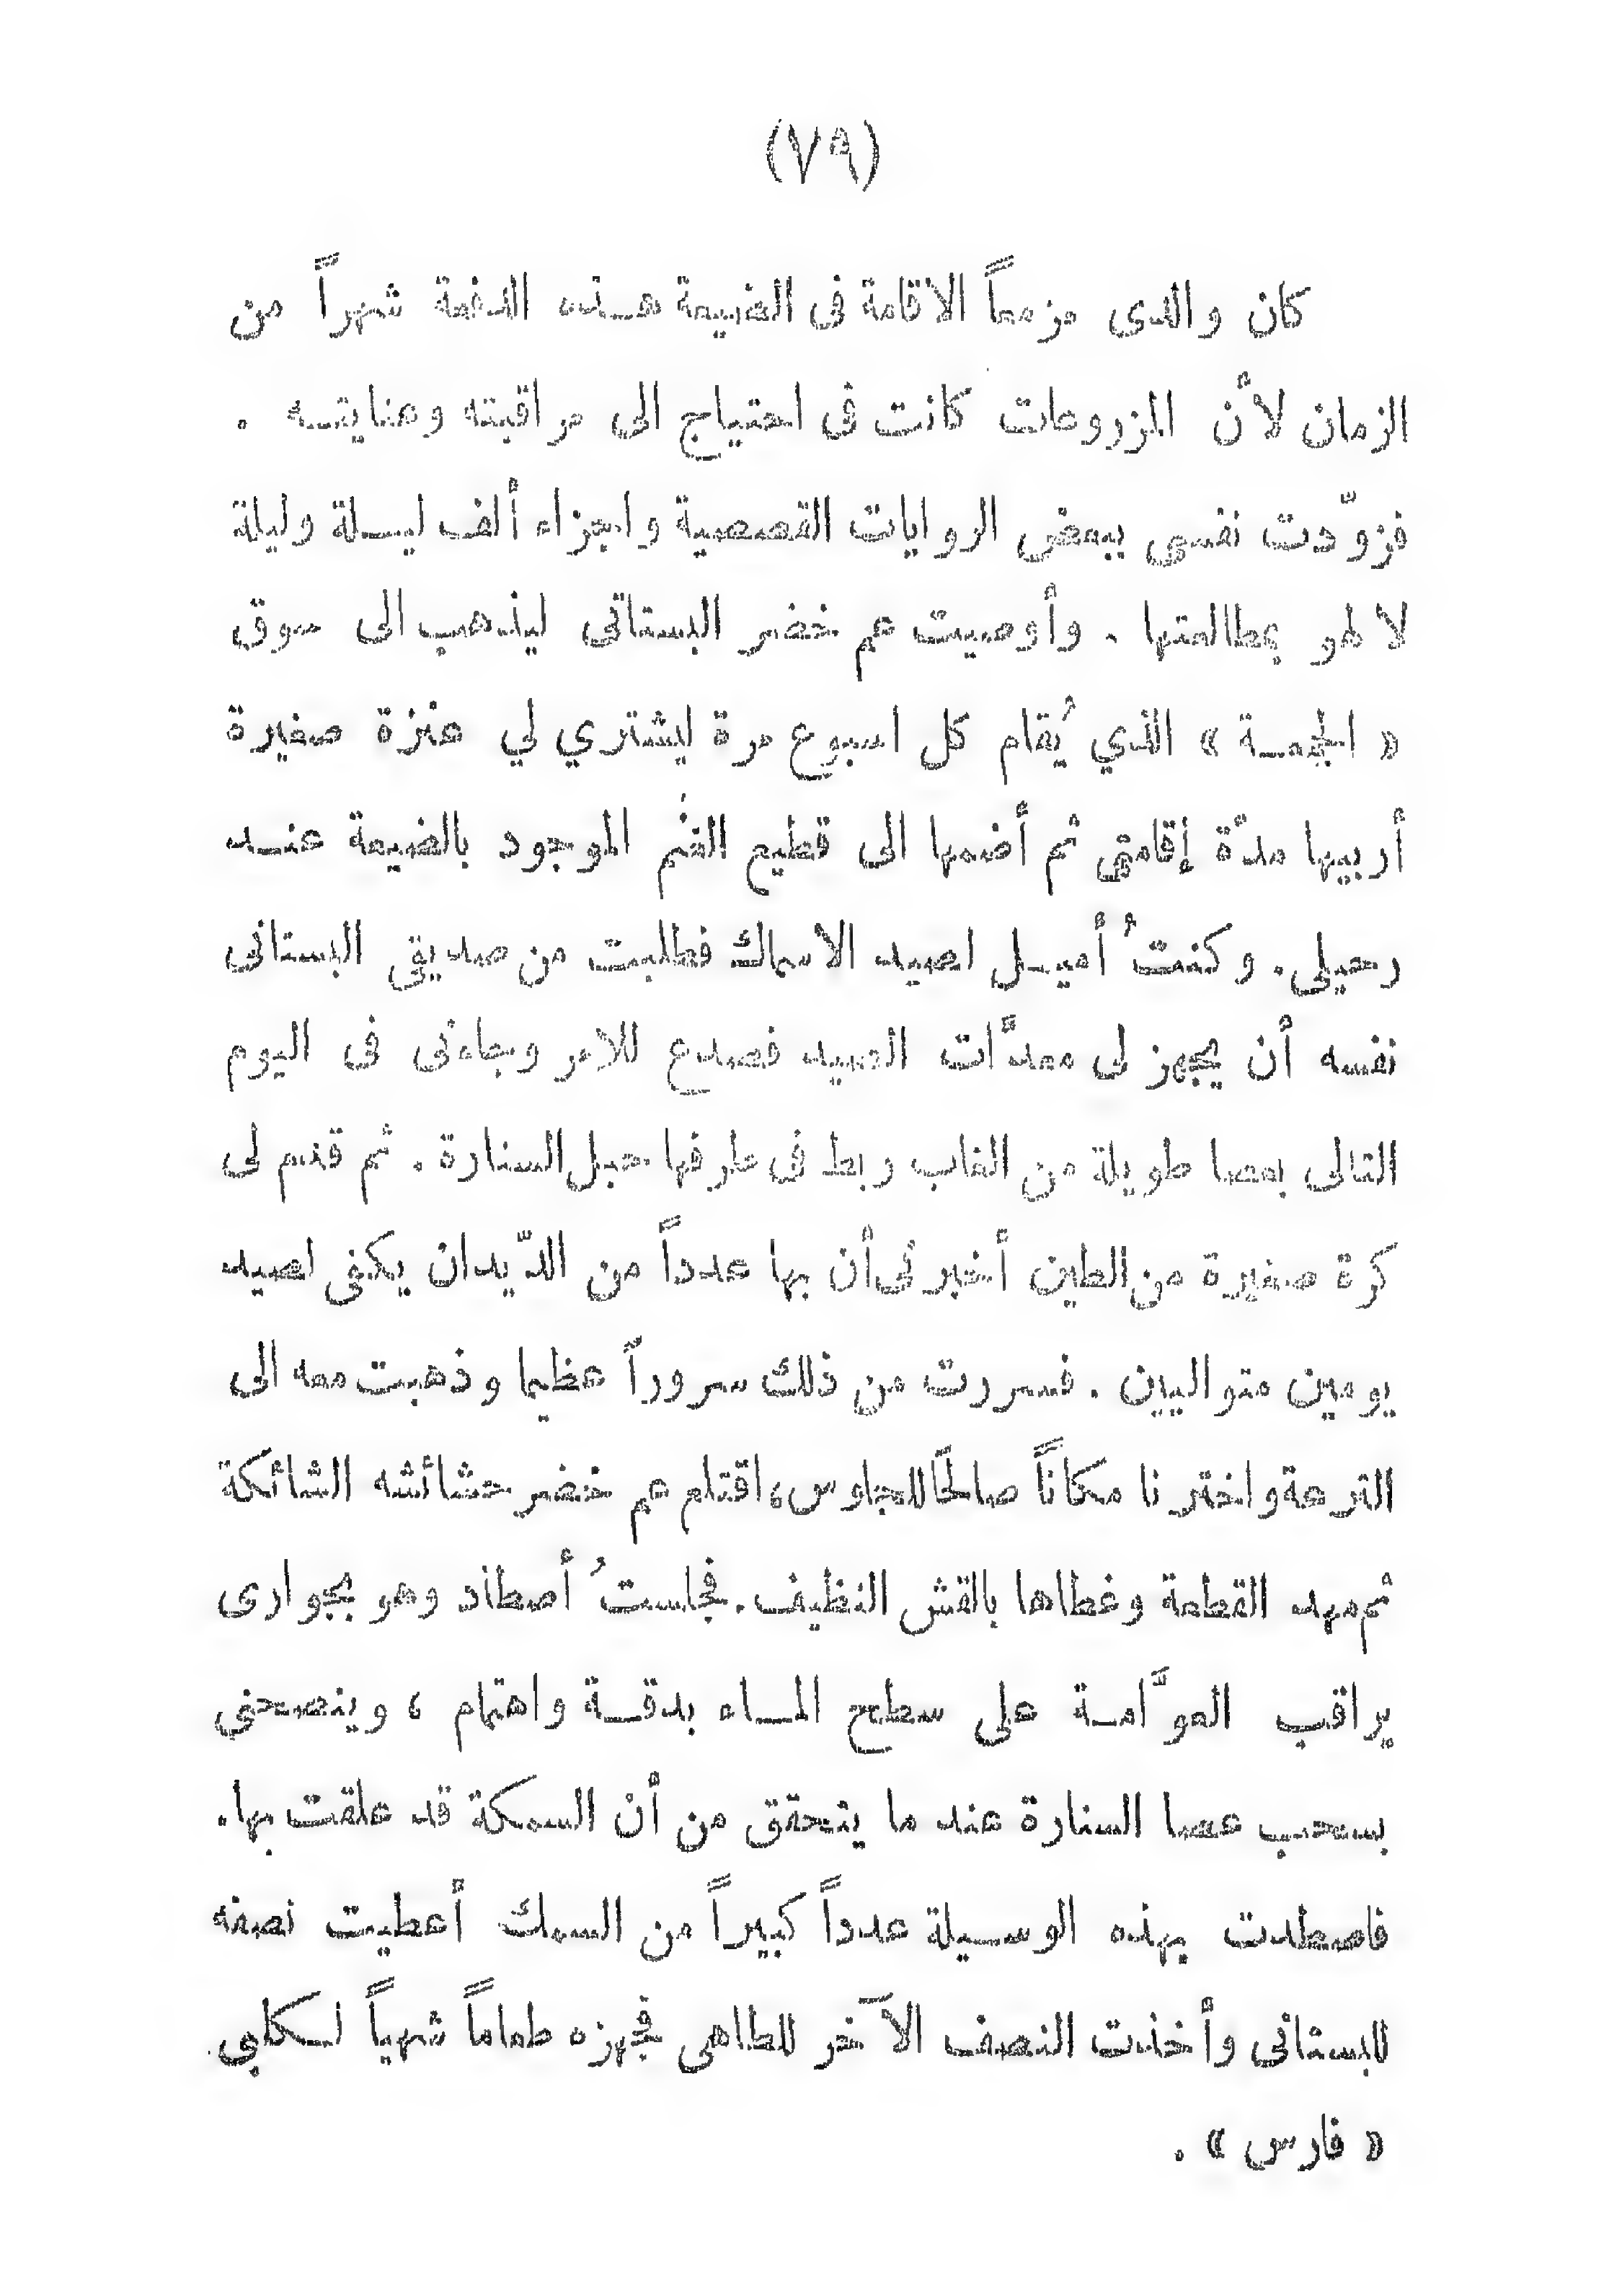 (٧٩)
كان والدى مزمعاً الاقامة فى الضيعة هـذه الدفعة شهراً من
الزمان لأن المزروعات كانت فى احتياج الى مراقبته وعنايتـه .
فزوّدت نفسى ببعض الروايات القصصية واجزاء ألف ليـلة وليلة
لالهو بمطالعتها . وأوصيت عم خضر البستانى ليذهب الى سوق
« الجمعـة » الذي يُقام كل اسبوع مرة ليشتري لي عنزة صغيرة
أربيها مدّة إقامتى ثم أضمها الى قطيع الغنُم الموجود بالضيعة عنـد
رحيلى. وكنتُ أميـل لصيد الاسماك فطلبت من صديقى البستانى
نفسه أن يجهز لى معدَّات الصيد فصدع للامر وجاءنى فى اليوم
التالى بعصا طويلة من الغاب ربط فى طرفها حبل السنارة . ثم قدم لى
كرة صغيرة من الطين أخبرنى أن بها عدداً من الدّيدان يكفى لصيد
يومين متواليين . فسررت من ذلك سروراً عظيما وذهبت معه الى
الترعة واخترنا مكاناً صالحًا للجلوس، اقتلع عم خضر حشائشه الشائكة
ثم مهد القطعة وغطاها بالقش النظيف. فجلستُ أصطاد وهو بجوارى
يراقب العوَّامـة على سطح المـاء بدقـة واهتمام ، وينصحنى
بسحب عصا السنارة عند ما يتحقق من أن السمكة قد علقت بها.
فاصطدت بهذه الوسـيلة عدداً كبيراً من السمك أعطيت نصفه
للبستانى وأخذت النصف الآخر للطاهى فجهزه طعاماً شهياً لـكلبى
« فارس » .